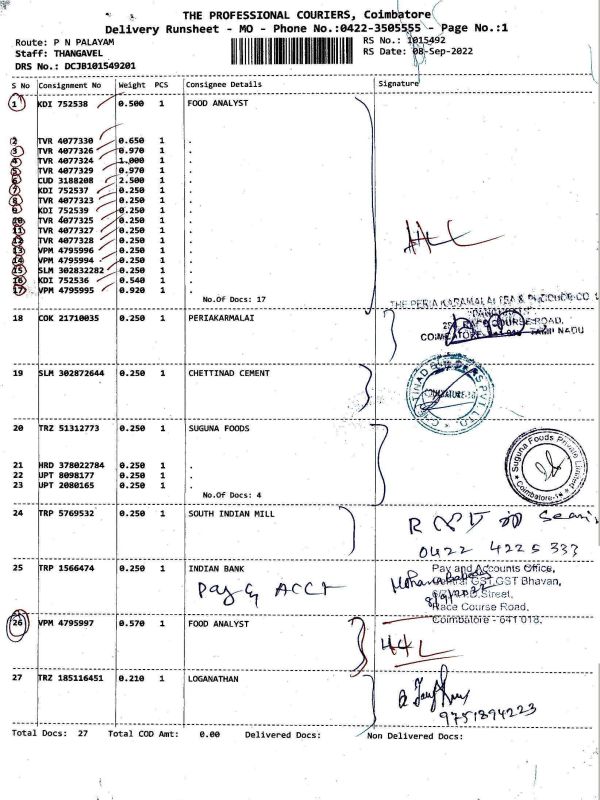 THE PROFESSIONAL COURIERS, Coimbatore
Delivery Runsheet - MO - Phone No.:0422-3505555 - Page No.:1
Route: P N PALAYAM RS No.: 1015492
Staff: THANGAVEL RS Date: 08-Sep-2022
DRS No.: DCJB101549201
S No Consignment No Weight PCS Consignee Details Signature
1 KDI 752538 0.500 1 FOOD ANALYST
2 TVR 4077330 0.650 1 .
3 TVR 4077326 0.970 1 .
4 TVR 4077324 1.000 1 .
5 TVR 4077329 0.970 1 .
6 CUD 3188208 2.500 1 .
7 KDI 752537 0.250 1 .
8 TVR 4077323 0.250 1 .
9 KDI 752539 0.250 1 .
10 TVR 4077325 0.250 1 .
11 TVR 4077327 0.250 1 .
12 TVR 4077328 0.250 1 .
13 VPM 4795996 0.250 1 .
14 VPM 4795994 0.250 1 .
15 SLM 302832282 0.250 1 .
16 KDI 752536 0.540 1 .
17 VPM 4795995 0.920 1 .
No.Of Docs: 17
THE PERIA KARAMALAI TEA & PRODUCE CO
18 COK 21710035 0.250 1 PERIAKARMALAI
RACE COURSE ROAD,
COIMBATORE TAMIL NADU
19 SLM 302872644 0.250 1 CHETTINAD CEMENT
20 TRZ 51312773 0.250 1 SUGUNA FOODS
Suguna Foods Private Limited
Coimbatore-18
21 HRD 378022784 0.250 1 .
22 UPT 8098177 0.250 1 .
23 UPT 2080165 0.250 1 .
No.Of Docs: 4
24 TRP 5769532 0.250 1 SOUTH INDIAN MILL
0422 4225 333
25 TRP 1566474 0.250 1 INDIAN BANK
Pay & ACCT
Pay and Accounts Office,
GST Bhavan,
Street,
Race Course Road,
Coimbatore - 641 018.
26 VPM 4795997 0.570 1 FOOD ANALYST
27 TRZ 185116451 0.210 1 LOGANATHAN
9751894223
Total Docs: 27 Total COD Amt: 0.00 Delivered Docs: Non Delivered Docs: